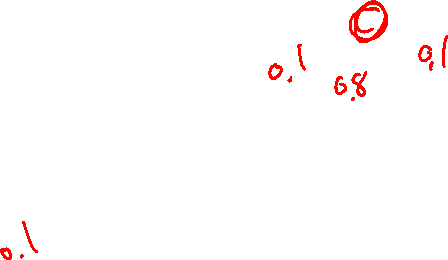 C
0.1 0.8 0.1
0.1